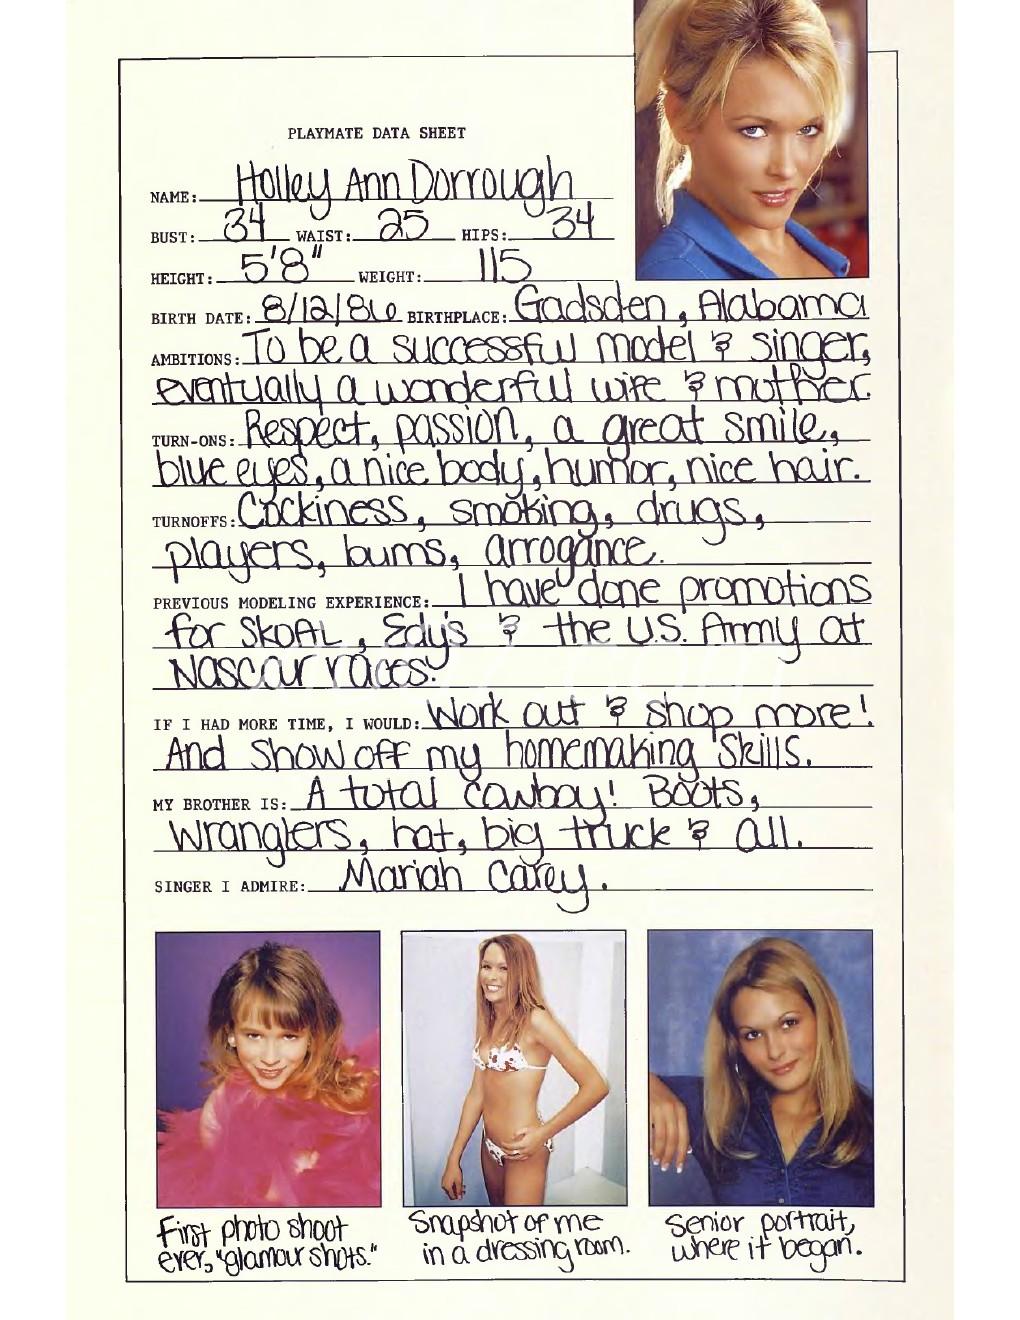 PLAYMATE DATA SHEET
NAME: Holley Ann Dorrough
BUST: 34 WAIST: 25 HIPS: 34
HEIGHT: 5'8" WEIGHT: 115
BIRTH DATE: 8/12/86 BIRTHPLACE: Gadsden, Alabama
AMBITIONS: To be a successful model & singer,
eventually a wonderful wife & mother.
TURN-ONS: Respect, passion, a great smile,
blue eyes, a nice body, humor, nice hair.
TURNOFFS: Cockiness, smoking, drugs,
players, bums, arrogance.
PREVIOUS MODELING EXPERIENCE: I have done promotions
for SKOAL, Edy's & the U.S. Army at
Nascar races.
IF I HAD MORE TIME, I WOULD: Work out & shop more!
And show off my homemaking skills.
MY BROTHER IS: A total cowboy! Boots,
Wranglers, hat, big truck & all.
SINGER I ADMIRE: Mariah Carey.
First photo shoot
ever, "glamour shots."
Snapshot of me
in a dressing room.
Senior portrait,
where it began.